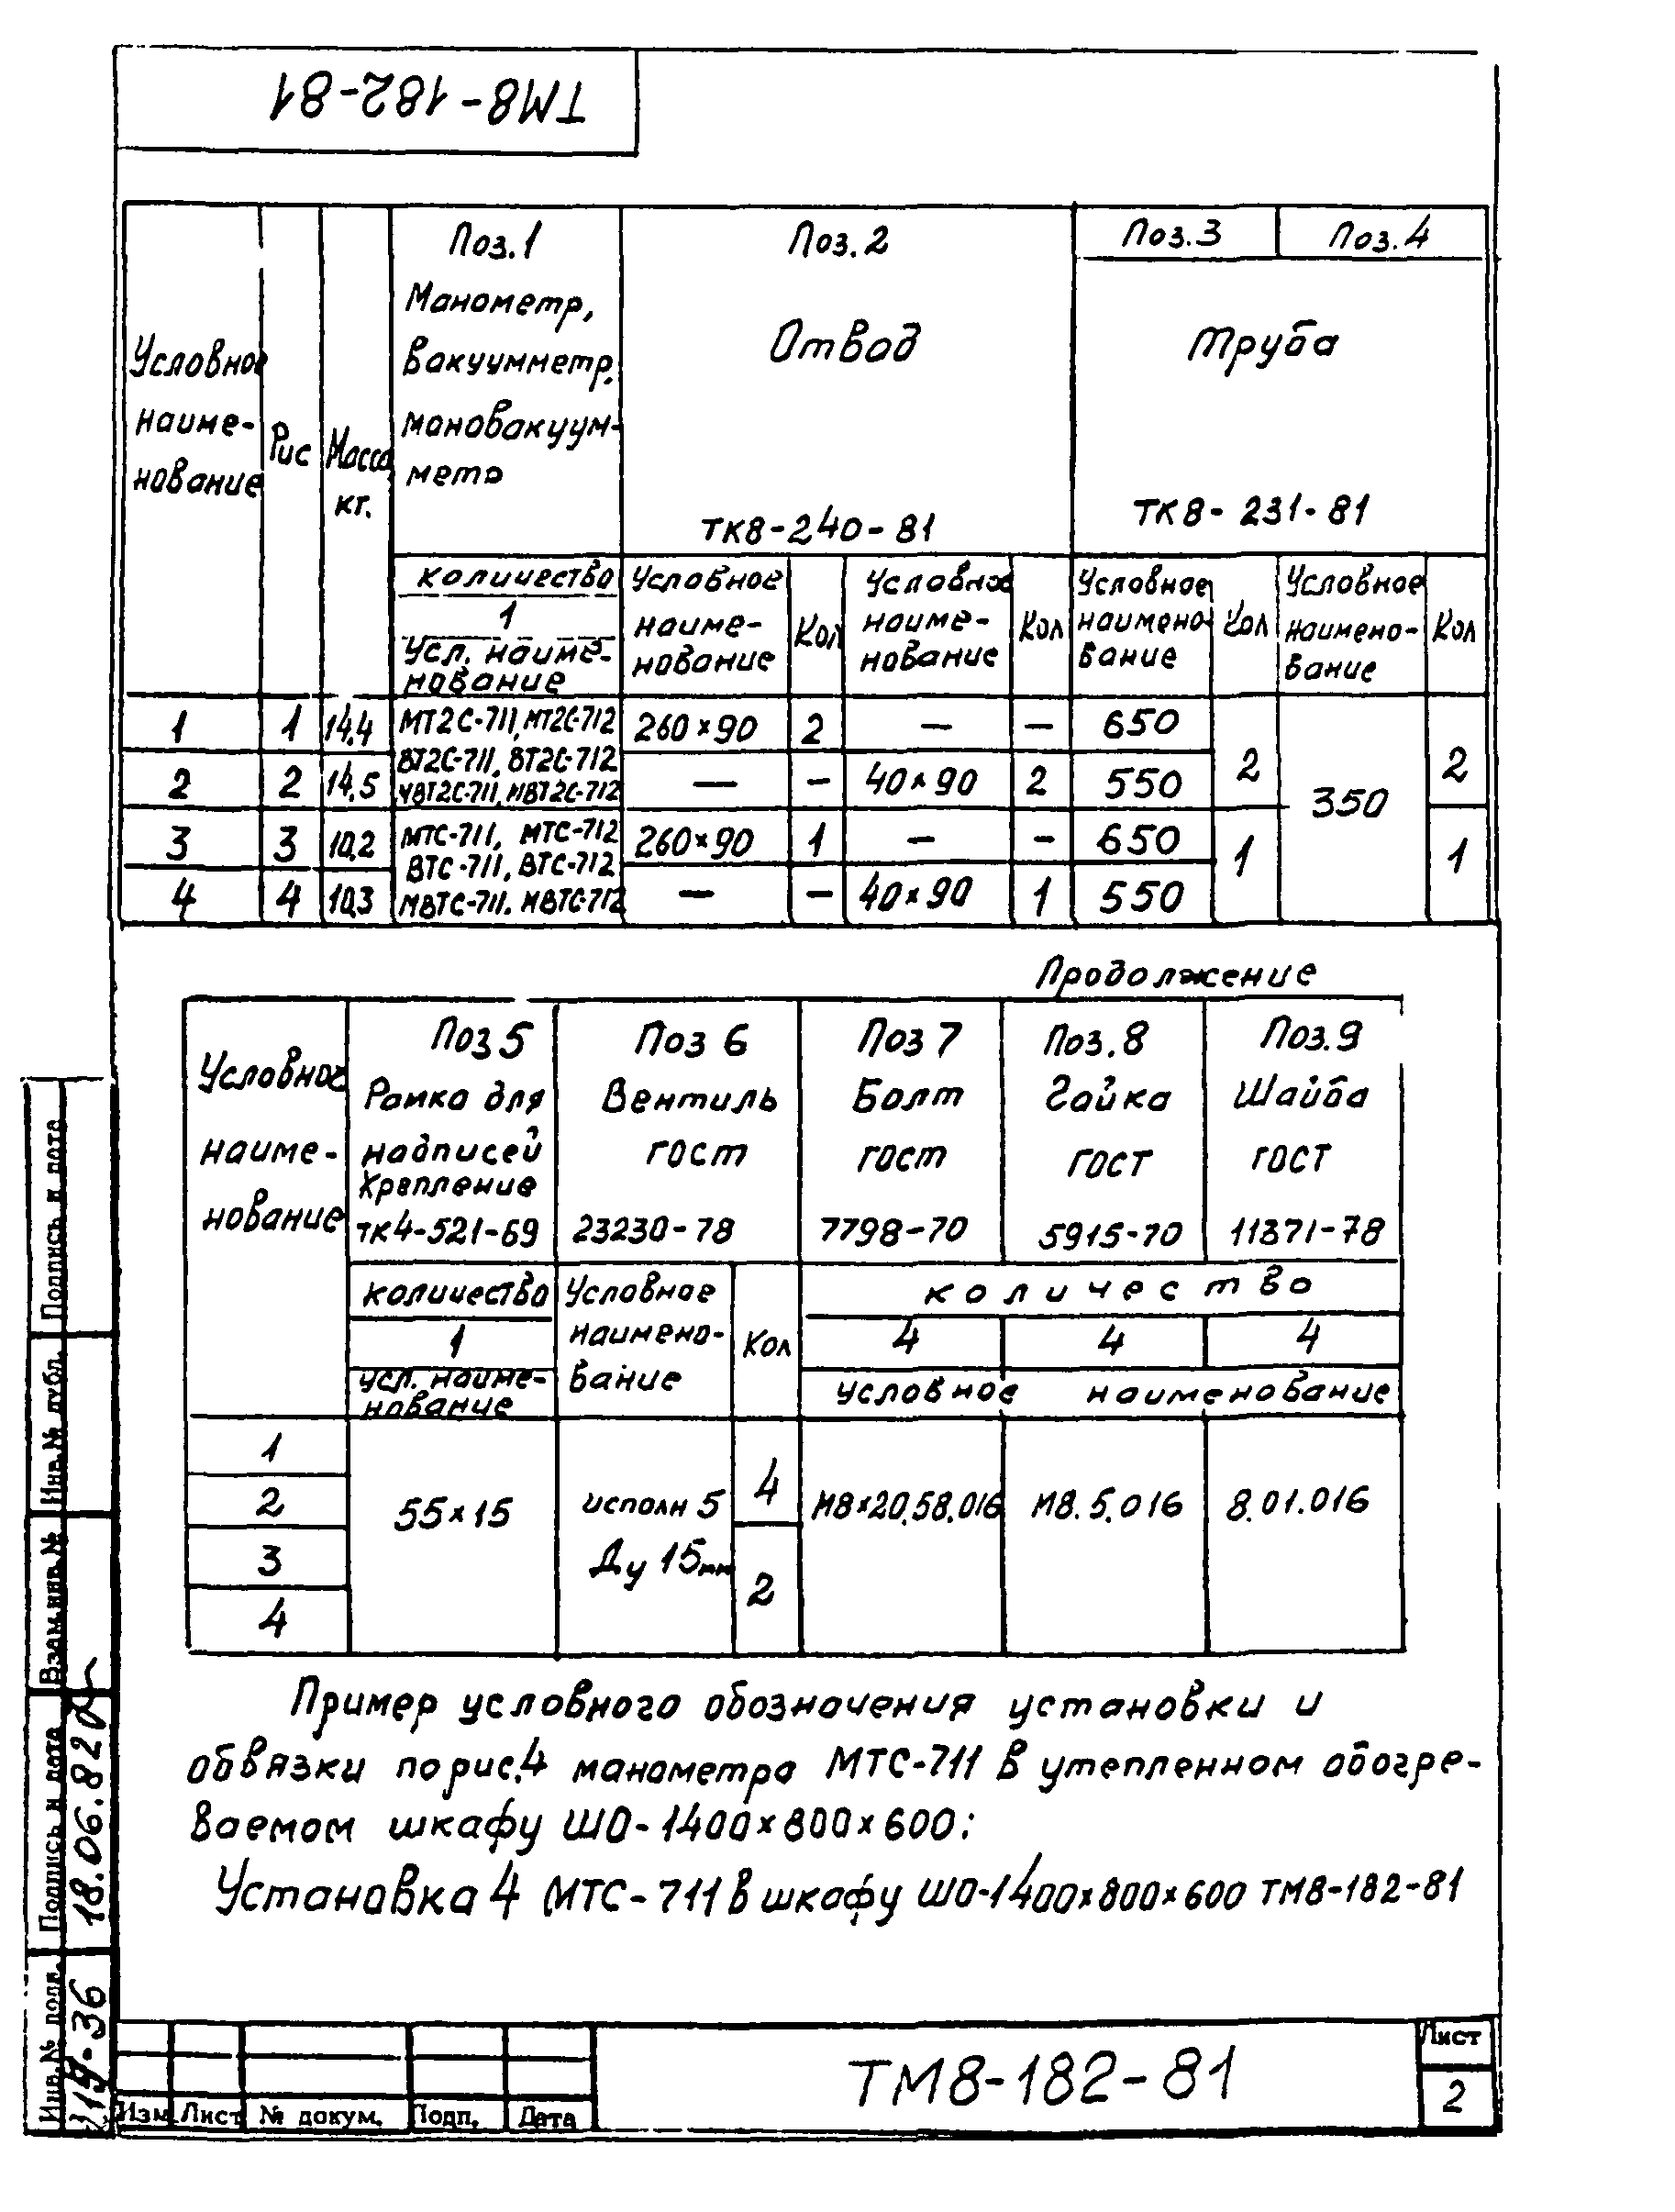 ТМ8-182-81
Условное наиме- нование
Рис
Масса кг.
Поз.1
Манометр,
вакуумметр,
мановакуум-
метр
количество
1
Усл. наиме-
нование
Поз.2
Отвод
ТК8-240-81
Условное наиме- нование
Кол
Условное наиме- нование
Кол
Поз.3
Поз.4
Труба
ТК8-231-81
Условное наимено- вание
Кол
Условное наимено- вание
Кол
1 1 14,4 МТ2С-711, МТ2С-712 260×90 2 — — 650
ВТ2С-711, ВТ2С-712
2 2 14,5 МВТ2С-711, МВТ2С-712 — — 40×90 2 550 2 350 2
3 3 10,2 МТС-711, МТС-712 260×90 1 — — 650
ВТС-711, ВТС-712 1 1
4 4 10,3 МВТС-711, МВТС-712 — — 40×90 1 550
Продолжение
Условное наиме- нование
Поз 5
Рамка для
надписей
Крепление
ТК4-521-69
количество
1
усл. наиме-
нование
Поз 6
Вентиль
ГОСТ
23230-78
Условное наимено- вание
Кол
Поз 7
Болт
ГОСТ
7798-70
Поз.8
Гайка
ГОСТ
5915-70
Поз.9
Шайба
ГОСТ
11371-78
количество
4 4 4
условное наименование
1
2
3
4
55×15
исполн 5
Ду 15мм
4
2
М8×20.58.016
М8.5.016
8.01.016
Пример условного обозначения установки и
обвязки по рис.4 манометра МТС-711 в утепленном обогре-
ваемом шкафу ШО-1400×800×600:
Установка 4 МТС-711 в шкафу ШО-1400×800×600 ТМ8-182-81
Подпись и дата
Инв. № дубл.
Взам. инв. №
Подпись и дата
18.06.82
Инв. № подл.
Изм. Лист № докум. Подп. Дата
ТМ8-182-81
Лист
2